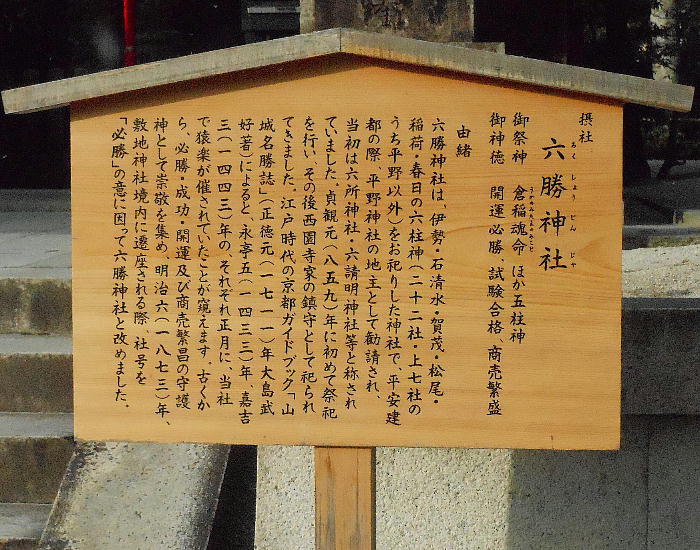 摂社
六勝神社
ろくしょうじんじゃ
御祭神　倉稲魂命　ほか五柱神
御神徳　開運必勝、試験合格、商売繁盛
由緒
六勝神社は、伊勢・石清水・賀茂・松尾・
稲荷・春日の六柱神（二十二社・上七社の
うち平野以外）をお祀りした神社で、平安建
都の際、平野神社の地主として勧請され、
当初は六所神社・六請明神社等と称され
ていました。貞観元（八五九）年に初めて祭祀
を行い、その後西園寺家の鎮守として祀られ
てきました。江戸時代の京都ガイドブック「山
城名勝誌」（正徳元（一七一一）年大島武
好著）によると、永享五（一四三三）年、嘉吉
三（一四四三）年の、それぞれ正月に、当社
で猿楽が催されていたことが窺えます。古くか
ら、必勝・成功・開運及び商売繁昌の守護
神として崇敬を集め、明治六（一八七三）年、
敷地神社境内に遷座される際、社号を
「必勝」の意に因って六勝神社と改めました。